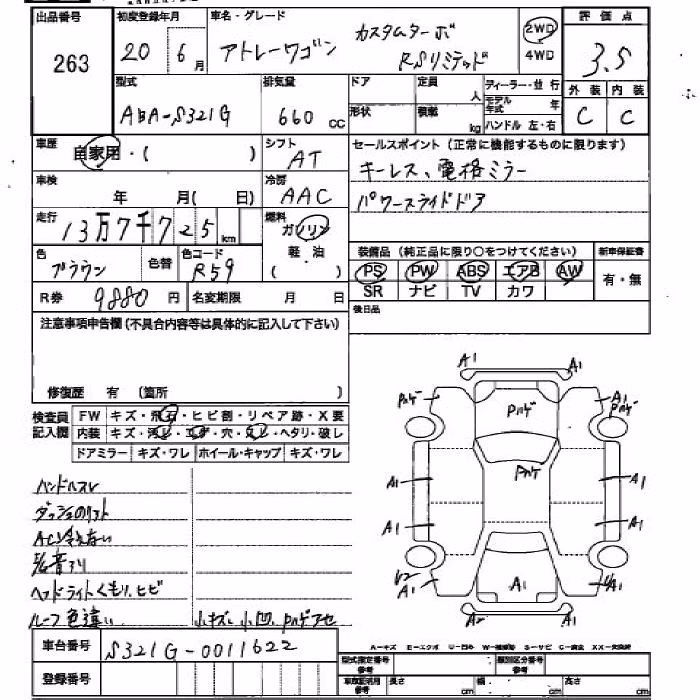 出品番号 263
初度登録年月 20 6月
車名・グレード アトレーワゴン カスタムターボ RSリミテッド
2WD 4WD
評価点 3.5
外装 内装
C C
型式 ABA-S321G
排気量 660 CC
ドア 形状
定員 人
積載 kg
ディーラー・並行
モデル年式 年
ハンドル 左・右
車歴 自家用・( )
シフト AT
セールスポイント(正常に機能するものに限ります)
キーレス、電格ミラー
パワースライドドア
車検 年 月(日)
冷房 AAC
走行 13万7千725km
燃料 ガソリン 軽・油 ( )
色 ブラウン 色替
色コード R59
装備品(純正品に限り○をつけてください)
PS PW ABS エアB AW
SR ナビ TV カワ
新車保証書 有・無
R券 9880円
名変期限 月 日
後日品
注意事項申告欄(不具合内容等は具体的に記入して下さい)
修復歴 有 (箇所 )
検査員記入欄
FW キズ・飛石・ヒビ割・リペア跡・X要
内装 キズ・汚レ・コゲ・穴・ヌレ・ヘタリ・破レ
ドアミラー キズ・ワレ ホイール・キャップ キズ・ワレ
ハンドルスレ
AC冷えない
ヘッドライトくもり、ヒビ
ルーフ色違い 小キズ、小凹、Pハゲアセ
A1 A1
Pハゲ Pハゲ A1 Pハゲ
Pハゲ
A1 A1
A1 A1
A1 A1 A1
A2 A1
A-キズ E-エクボ U-凹み W-補修跡 S-サビ C-腐食 XX-交換済
車台番号 S321G-0011622
登録番号
型式指定番号 参考
類別区分番号 参考
車庫証明用 参考
長さ cm 幅 cm 高さ cm